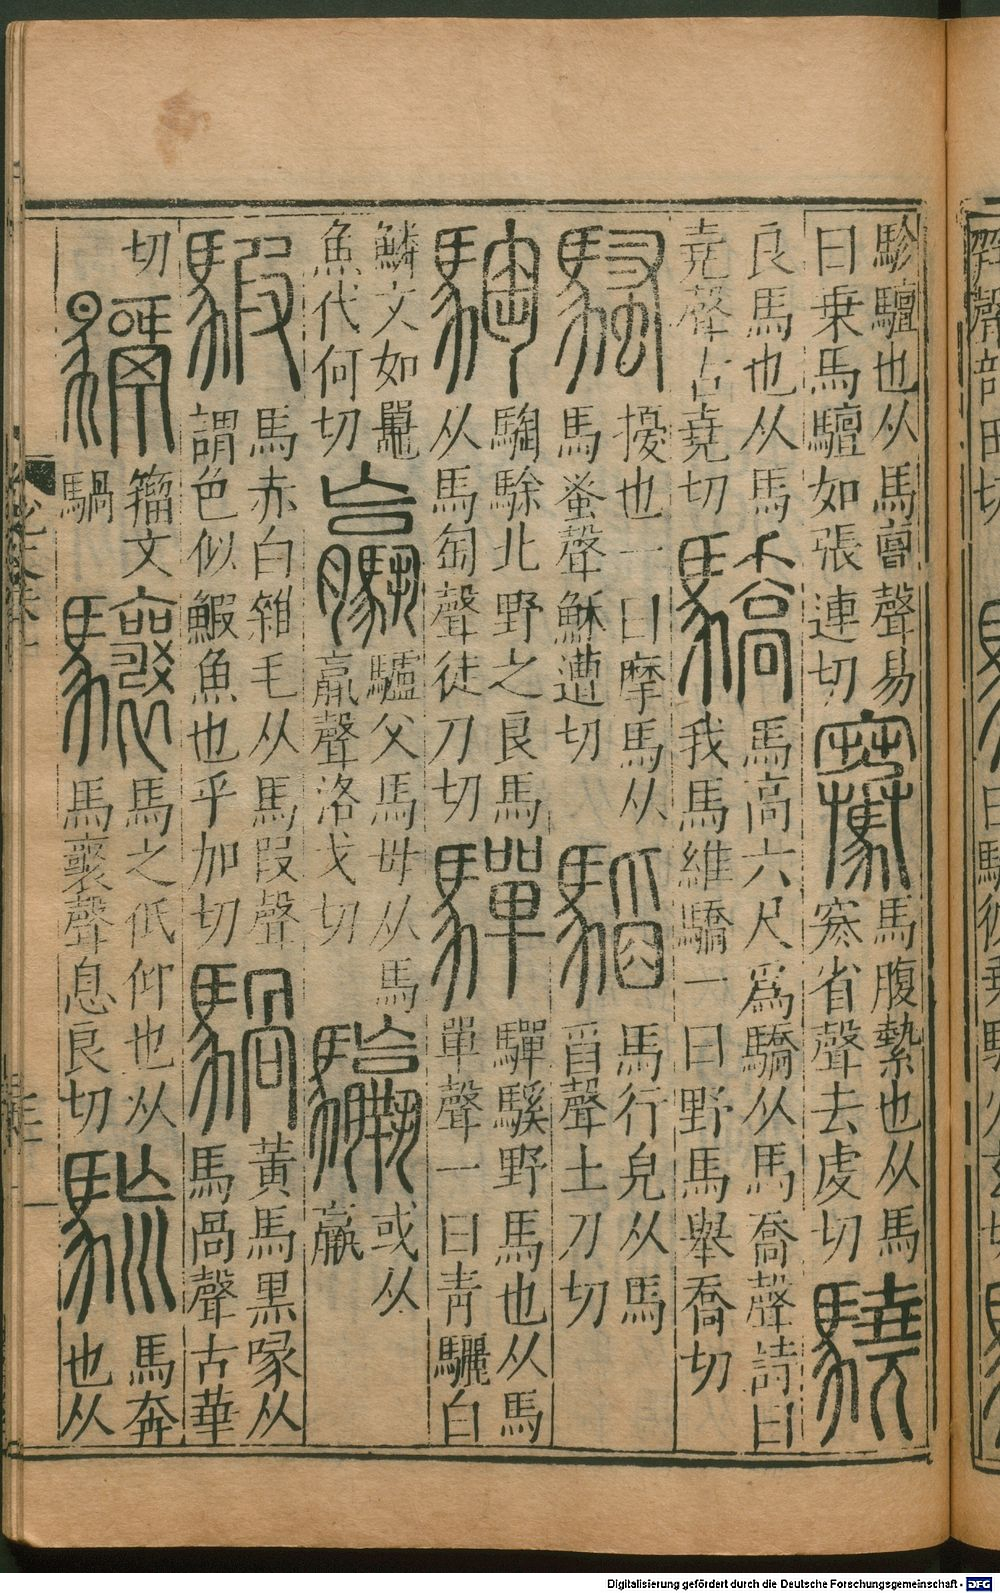 駗驙也从馬亶聲易
曰乗馬驙如張連切
騫
馬腹縶也从馬
寒省聲去虔切
驍
良馬也从馬
堯聲古堯切
驕
馬高六尺爲驕从馬喬聲詩曰
我馬維驕一曰野馬舉喬切
騷
擾也一曰摩馬从
馬蚤聲穌遭切
馬行皃从馬
舀聲土刀切
騊
騊駼北野之良馬
从馬匋聲徒刀切
驒
驒騱野馬也从馬
單聲一曰青驪白
鱗文如鼉
魚代何切
驘
驢父馬母从馬
𣎆聲洛戈切
或从
羸
騢
馬赤白雜毛从馬叚聲
謂色似鰕魚也乎加切
騧
黃馬黑喙从
馬咼聲古華
切
籀文
騧
驤
馬之低仰也从
馬襄聲息良切
馬奔
也从